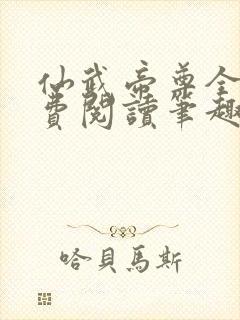 仙武帝尊全
費閱讀筆趣
哈貝馬斯